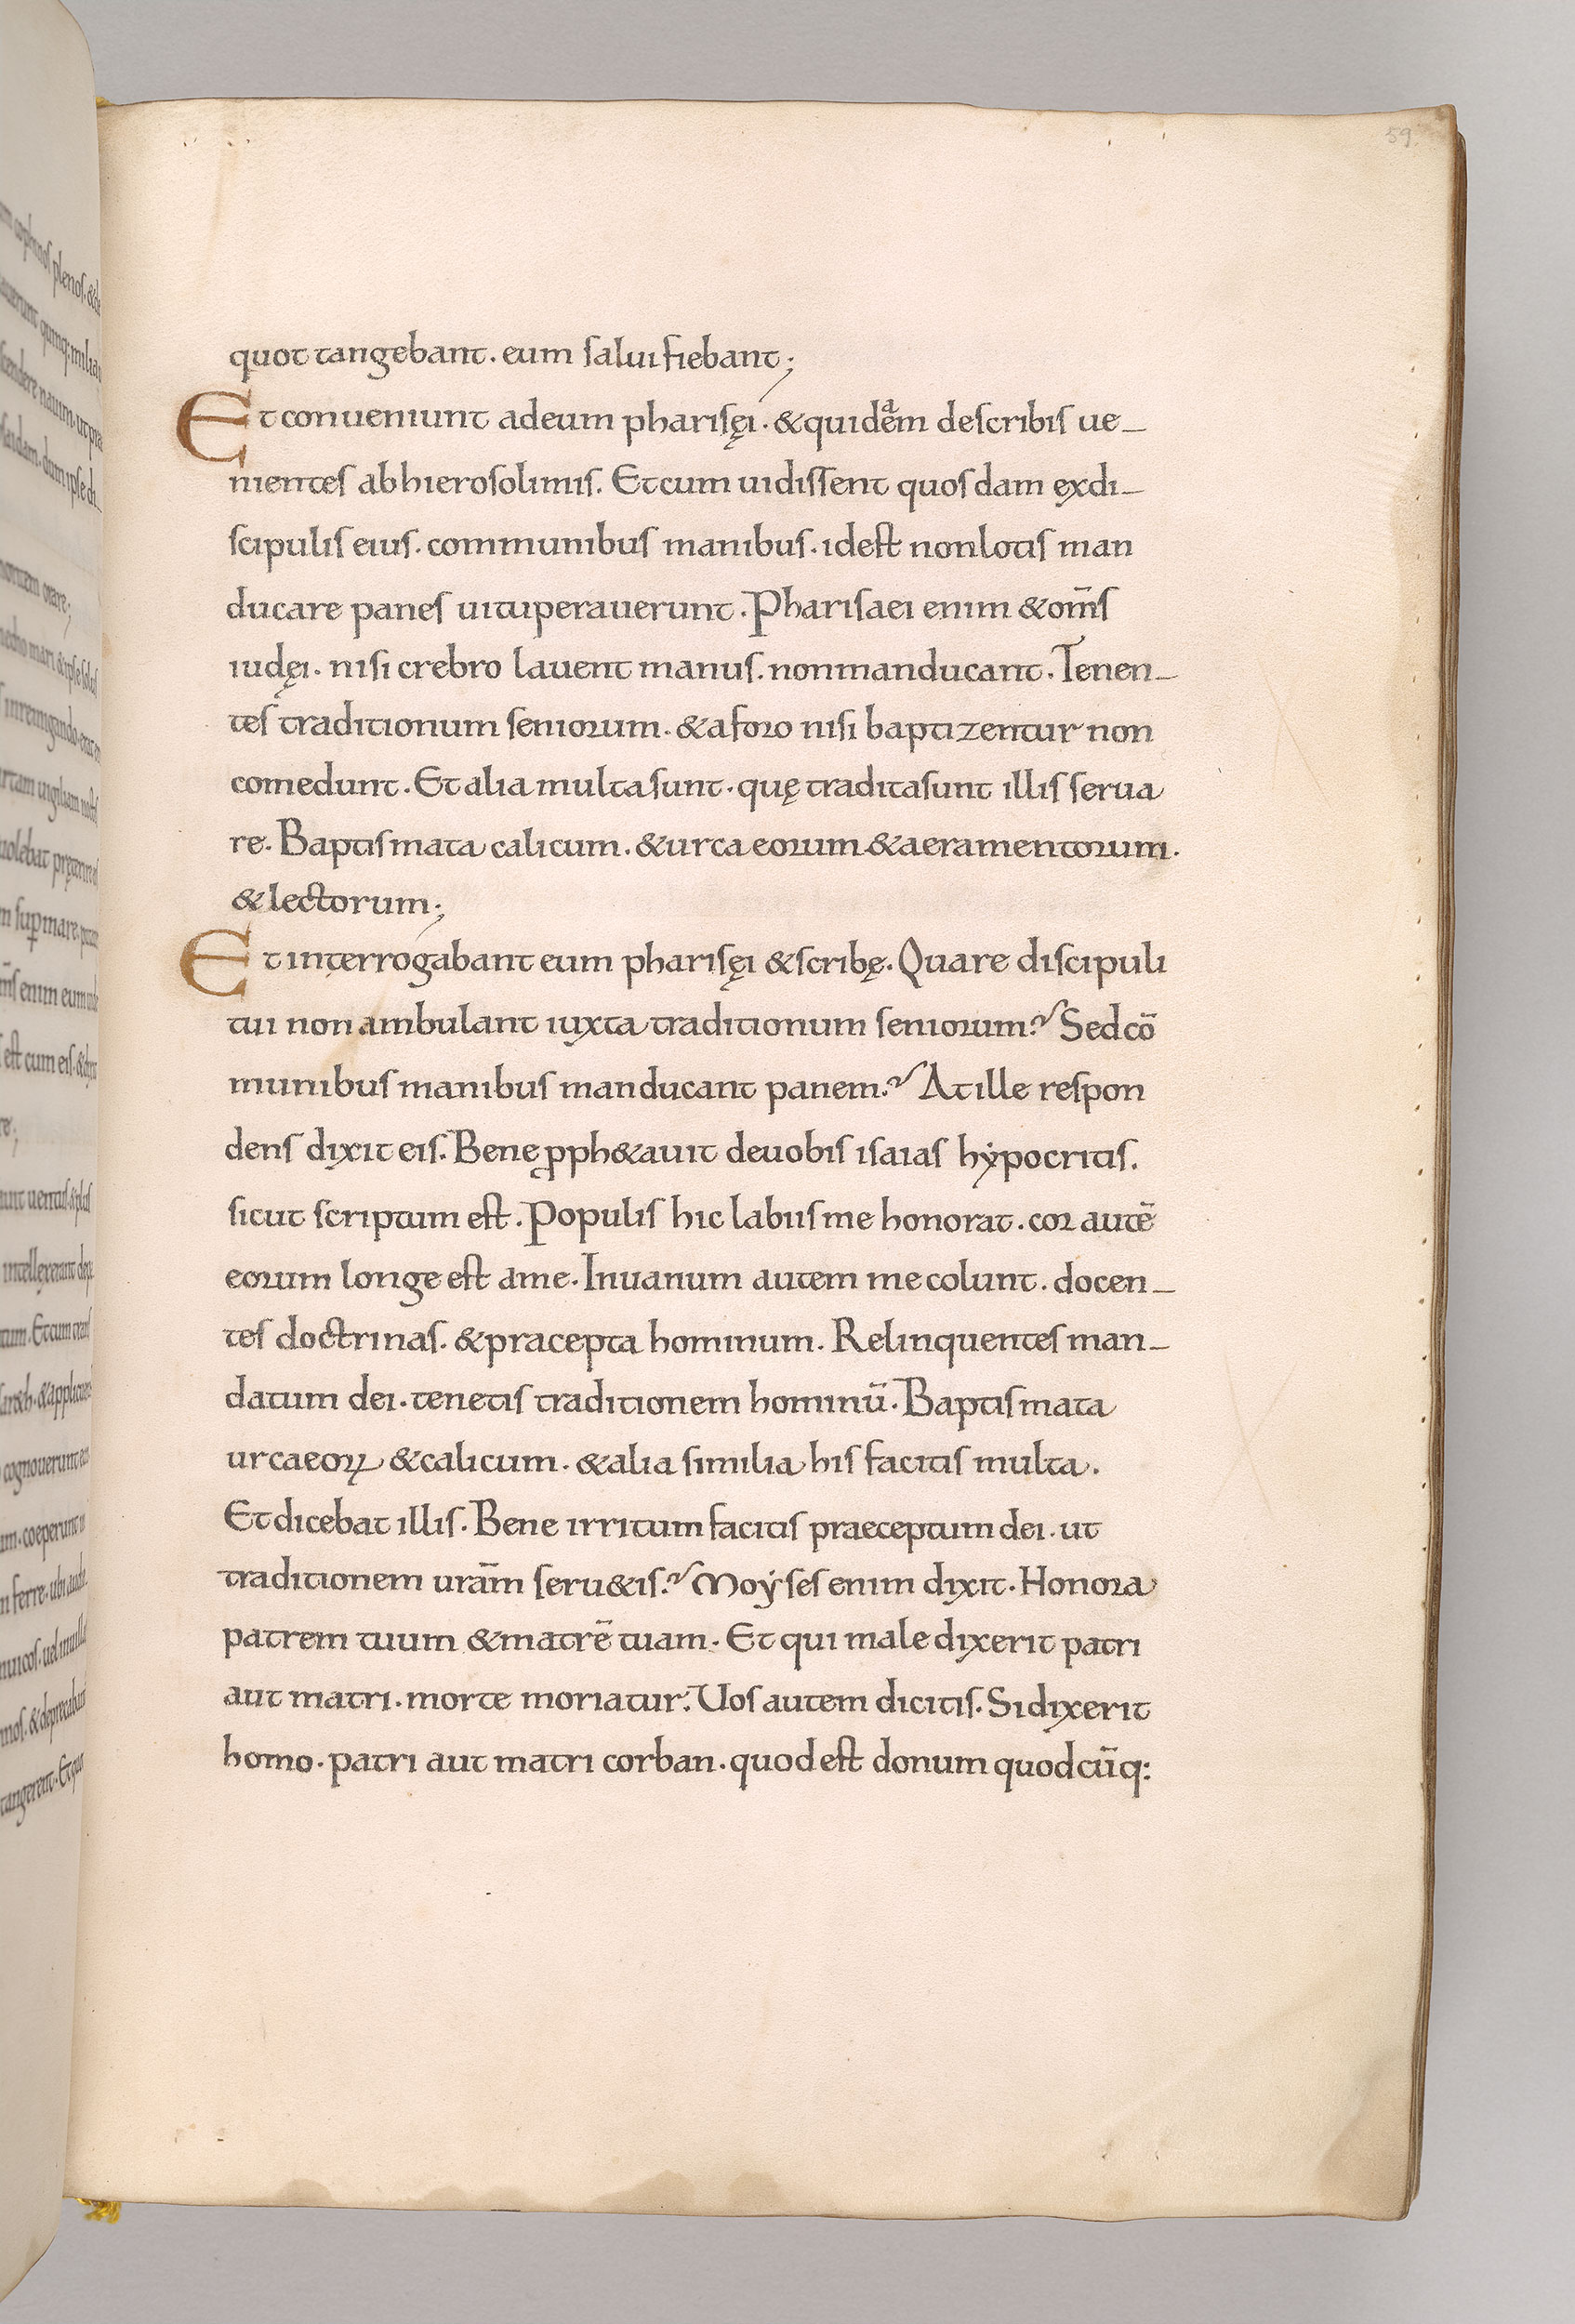 59.
quot tangebant. eum salui fiebant;
Et conueniunt adeum pharisęi. & quidēm describis ue-
nientes ab hierosolimis. Et cum uidissent quosdam exdi-
scipulis eius. communibus manibus. idest nonlotis man
ducare panes uituperauerunt. Pharisaei enim & om̄s
iudęi. nisi crebro lauent manus. nonmanducant. Tenen-
tes traditionum seniorum. & aforo nisi baptizentur non
comedunt. Et alia multa sunt. quę tradita sunt illis serua
re. Baptismata calicum. & urcaeorum & aeramentorum.
& lectorum;
Et interrogabant eum pharisęi & scribę. Quare discipuli
tui non ambulant iuxta traditionum seniorum? Sed cō
munibus manibus manducant panem? At ille respon
dens dixit eis. Bene ꝓph&auit deuobis isaias hẏpocritis.
sicut scriptum est. Populis hic labiis me honorat. cor autē
eorum longe est ame. Inuanum autem me colunt. docen-
tes doctrinas. & pracepta hominum. Relinquentes man-
datum dei. tenetis traditionem hominū. Baptismata
urcaeoꝝ & calicum. & alia similia his facitis multa.
Et dicebat illis. Bene irritum facitis praeceptum dei. ut
traditionem urām seru&is? Moẏses enim dixit. Honora
patrem tuum & matrē tuam. Et qui male dixerit patri
aut matri. morte moriatur. Uos autem dicitis. Si dixerit
homo. patri aut matri corban. quod est donum quodcūq: